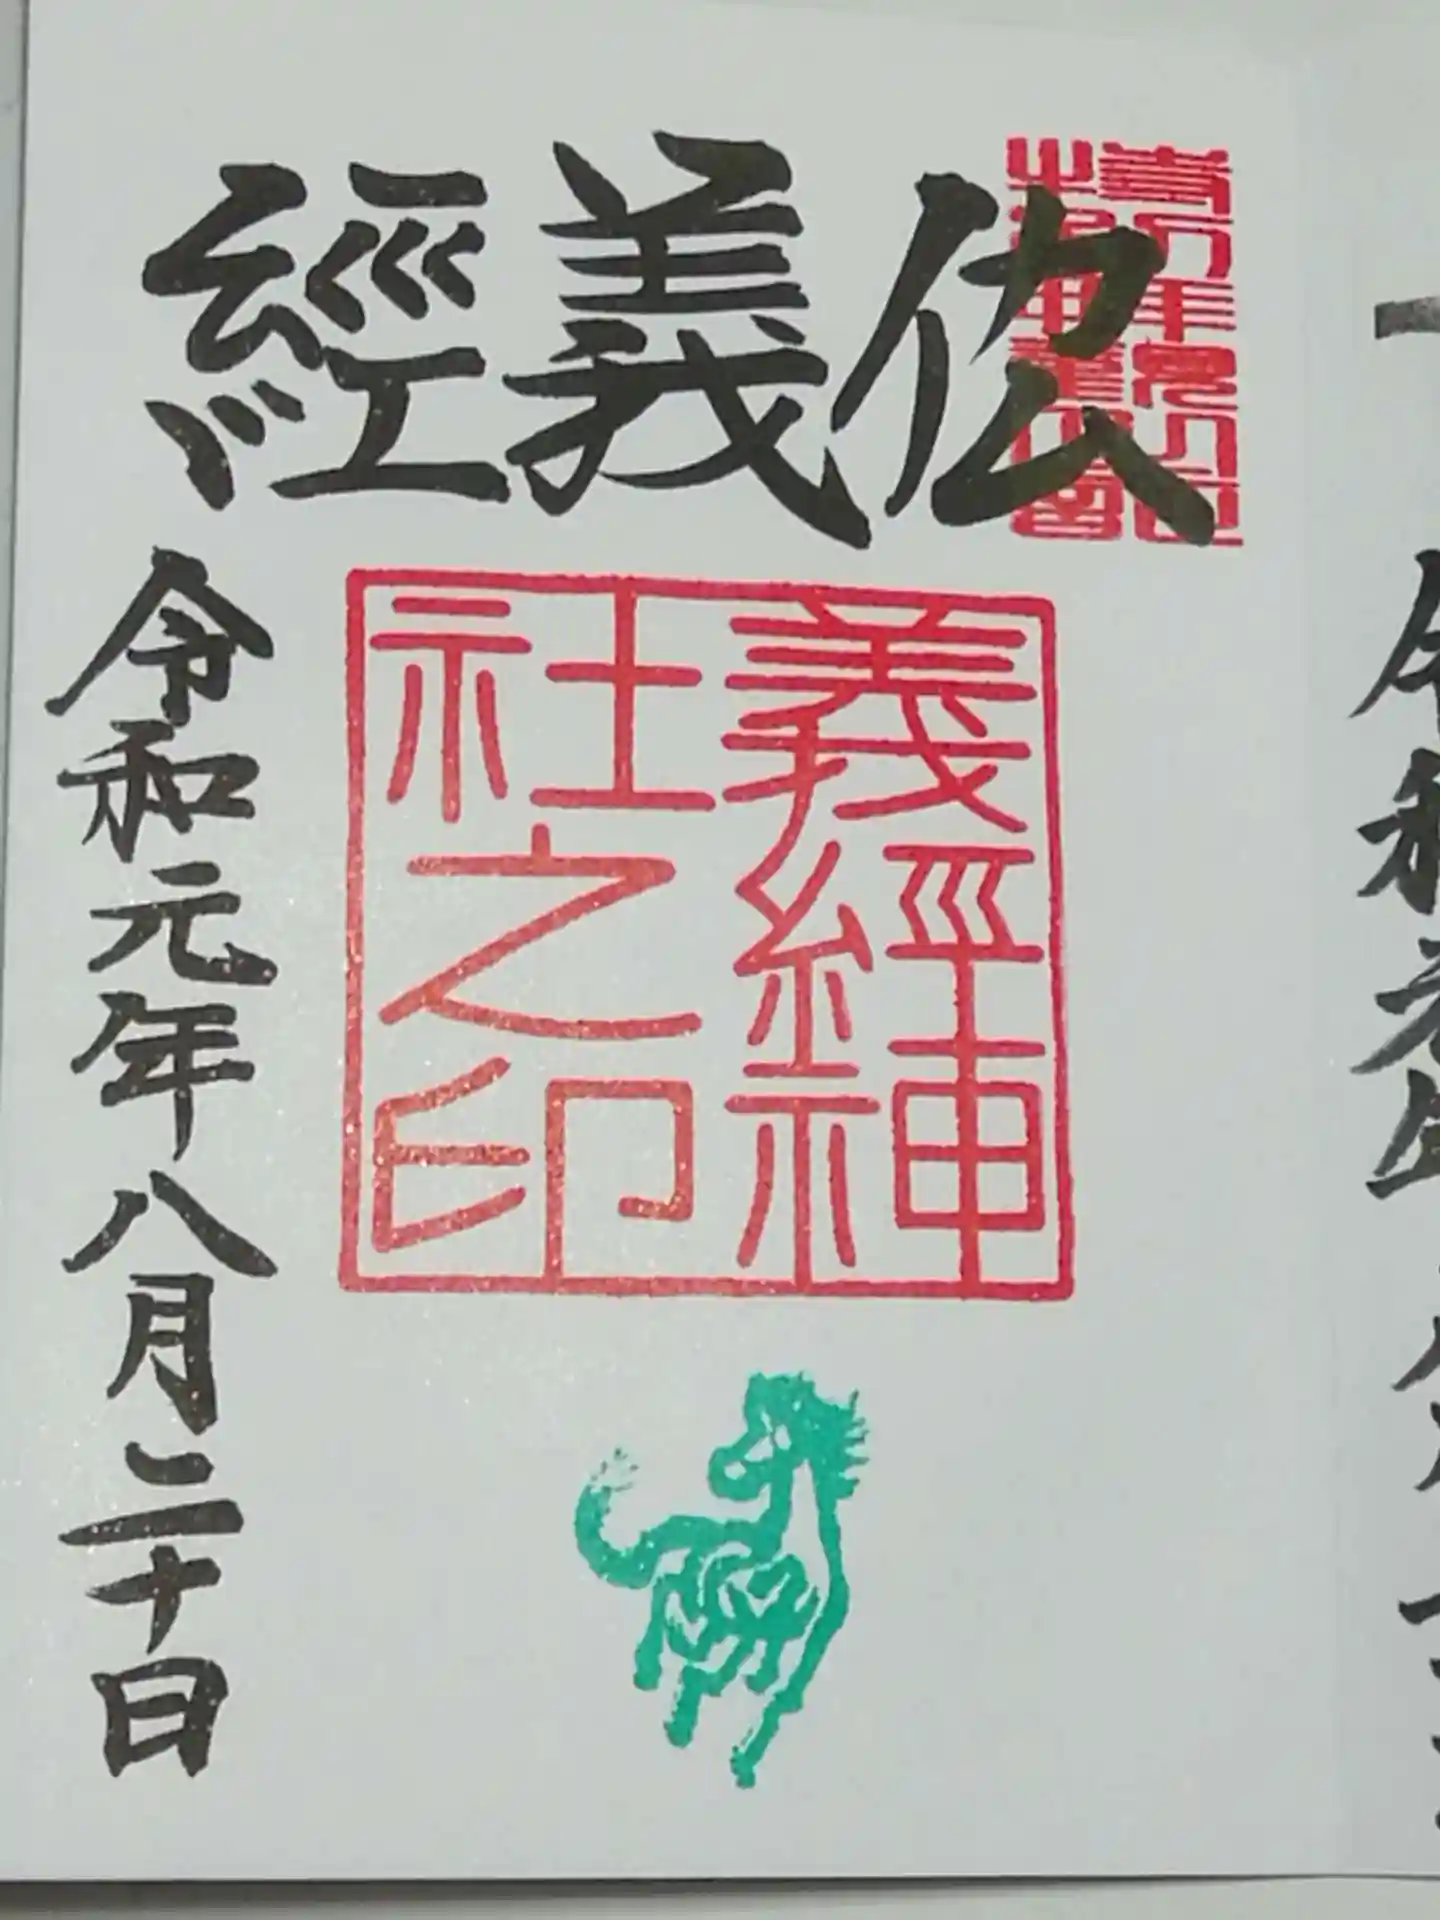 カムイ義經
義經神
社之印
令和元年八月二十日